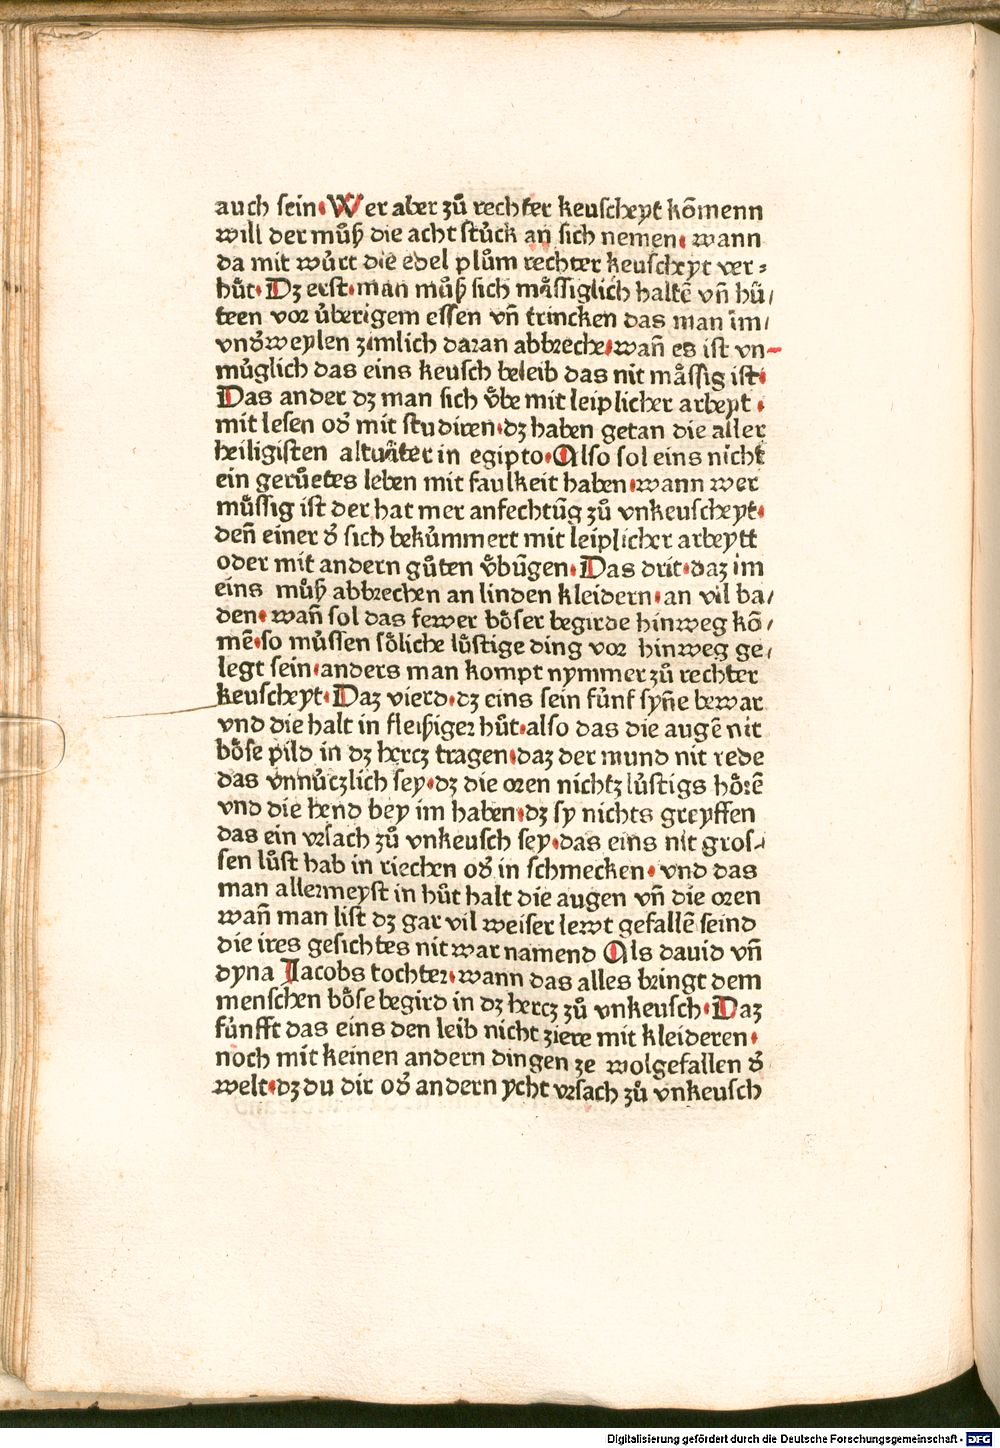 auch sein·Wer aber zů rechter keuscheyt kõmenn
will der můß die acht stůck an sich nemen· wann
da mit wůrt die edel plům rechter keuscheyt ver⸗
hůt·Dz erst·man můß sich mǎssiglich haltē vñ hů/
teen vor ůberigem essen vñ trincken das man im/
vnd̾weylen zimlich daran abbreche·wañ es ist vn-
můglich das eins keusch beleib das nit mǎssig ist·
Das ander dz man sich ůbe mit leiplicher arbeyt·
mit lesen od̾ mit studiren·dz haben getan die aller
heiligisten altuǎter in egipto·Also sol eins nicht
ein gerůetes leben mit faulkeit haben·wann wer
můssig ist der hat mer anfechtũg zů vnkeuscheyt·
deñ einer d̾ sich bekůmmert mit leiplicher arbeytt
oder mit andern gůten ůbũgen·Das drit·daz im
eins můß abbrechen an linden kleidern·an vil ba/
den·wañ sol das fewer bőser begirde hinweg kõ/
mē·so můssen sőliche lůstige ding vor hinweg ge/
legt sein·anders man kompt nymmer zů rechter
keuscheyt·Daz vierd·dz eins sein fůnf syñe bewar
vnd die halt in fleißiger hůt·also das die augē nit
bőse pild in dz hercz tragen·daz der mund nit rede
das vnnůczlich sey·dz die oren nichtz lůstigs hőrē
vnd die hend bey im haben·dz sy nichts greyffen
das ein vrsach zů vnkeusch sey·das eins nit gros⸗
sen lůst hab in riechen od̾ in schmecken· vnd das
man allermeyst in hůt halt die augen vñ die oren
wañ man list dz gar vil weiser lewt gefallē seind
die ires gesichtes nit war namend Als dauid vñ
dyna Jacobs tochter·wann das alles bringt dem
menschen bőse begird in dz hercz zů vnkeusch·Daz
fůnfft das eins den leib nicht ziere mit kleideren·
noch mit keinen andern dingen ze wolgefallen d̾
welt·dz du dir od̾ andern ycht vrsach zů vnkeusch
Digitalisierung gefördert durch die Deutsche Forschungsgemeinschaft - DFG